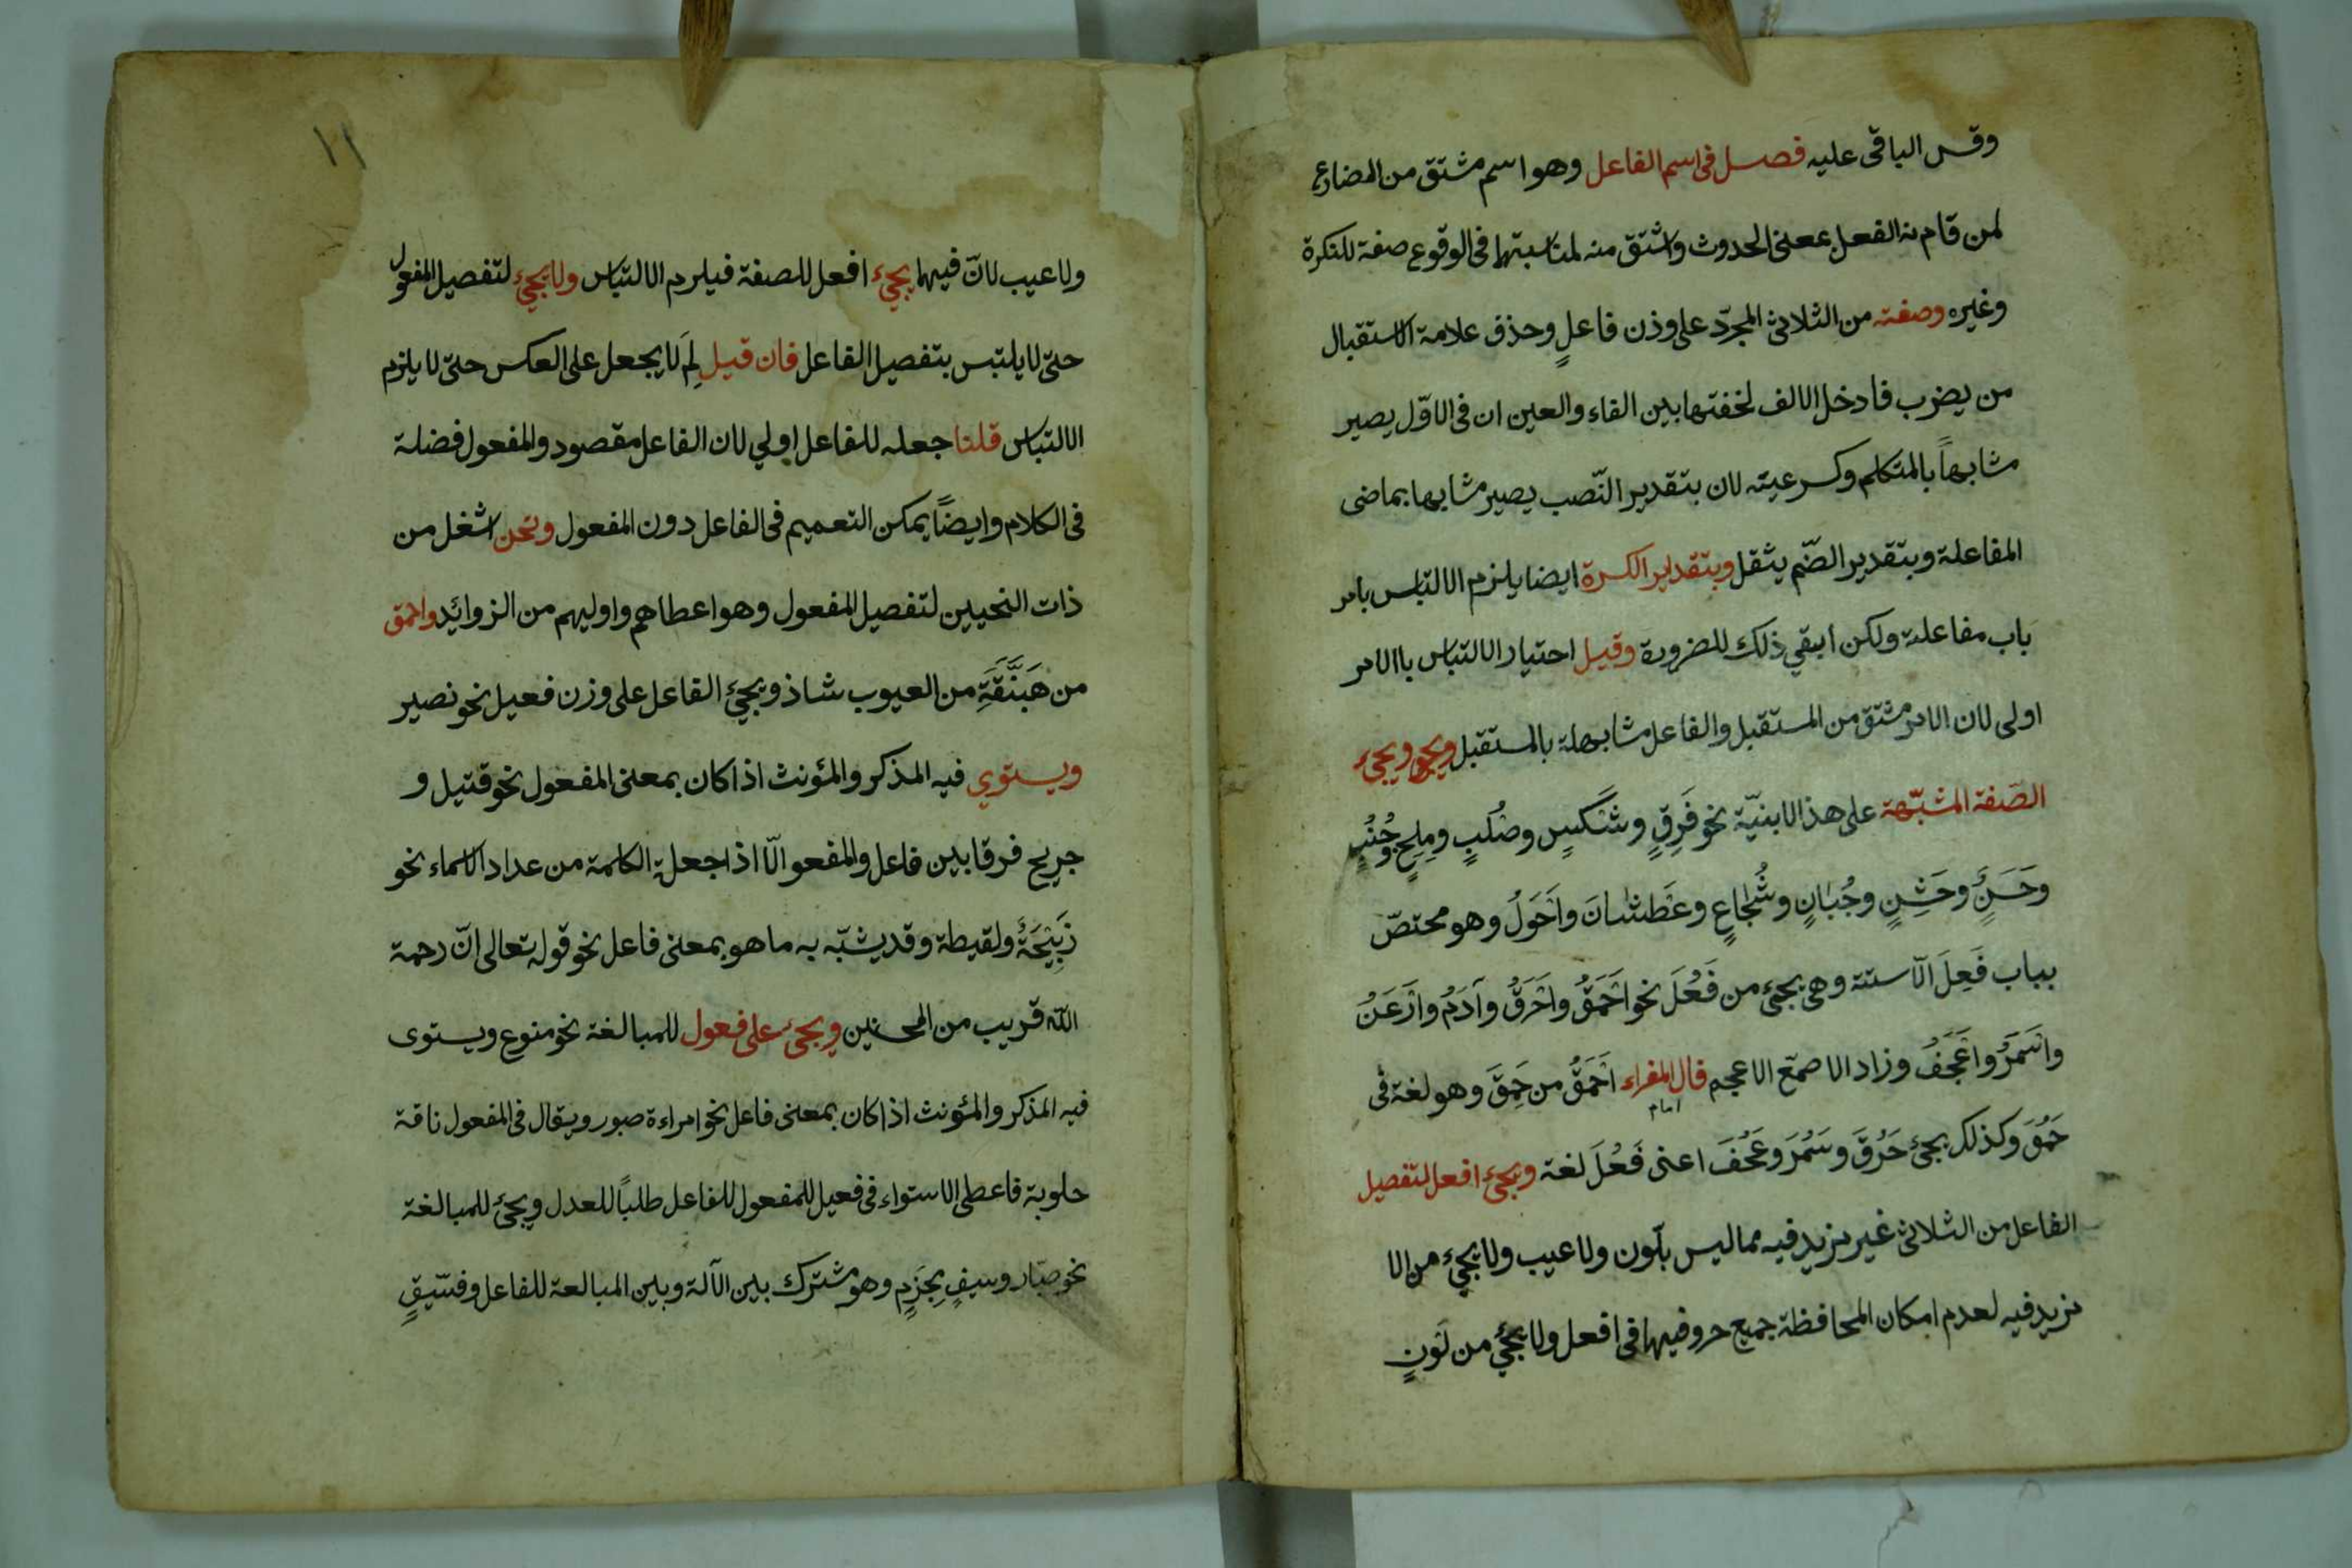 وقس الباقى عليه فصل فى اسم الفاعل وهو اسم مشتق من المضارع
لمن قام به الفعل بمعنى الحدوث واشتق منه لمناسبتها فى الوقوع صفة للنكرة
وغيره وصفته من الثلاثى المجرّد على وزن فاعلٍ وحذف علامة الاستقبال
من يضرب فادخل الالف لخفتها بين الفاء والعين ان فى الاوّل يصير
مشابهاً بالمتكلم وكسر عينه لان بتقدير النّصب يصير مشابها بماضى
المفاعلة وبتقدير الضّم يثقل وبتقدير الكسرة ايضا يلزم الالتباس بأمر
باب مفاعلة ولكن أبقي ذلك للضرورة وقيل احتيار الالتباس باالامر
اولى لان الامر مشتق من المستقبل والفاعل مشابهلة بالمستقبل ويجئ
الصّفة المشبّهة على هذا الابنيّة نحو فَرِقٍ وشَكسٍ وصُلبٍ ومِلحٍ وجُنُبٍ
وحَسَنٍ وخَشِنٍ وجُبَانٍ وشُجَاعٍ وعَطشَانَ واَحْوَلُ وهو مختصّ
بباب فَعِلَ الّا ستة وهى يجئ من فَعُلَ نحو اَحْمَقُ واَخْرَقُ وآدَمُ واَرْعَنُ
واَسْمَرُ واَعْجَفُ وزاد الاصمّع الاعجم قال الفراء اَحْمَقُ من حَمِقَ وهو لغة فى
امام
حَمُقَ وكذلك يجئ خَرُقَ وسَمُرَ وعَجُفَ اعنى فَعُلَ لغة ويجئ افعل لتفصيل
الفاعل من الثلاثى غير مزيد فيه مما ليس بلون ولا عيب ولا يجئ من الا
مزيد فيه لعدم امكان المحافظة جميع حروفيها فى افعل ولا يجئ من لَونٍ
١١
ولا عيب لانّ فيهما يجئ افعل للصفة فيلزم الالتباس ولا يجئ لتفصيل المفعول
حتى لا يلتبس بتفصيل الفاعل فان قيل لِمَ لا يجعل على العكس حتى لا يلزم
الالتباس قلنا جعله للفاعل اولي لان الفاعل مقصود والمفعول فضلة
فى الكلام وايضاً يمكن التعميم فى الفاعل دون المفعول ونحن اشغل من
ذات النحيين لتفصيل المفعول وهو اعطاهم واوليهم من الزوائد واحمق
من هَبَنَّقَةِ من العيوب شاذ ويجئ الفاعل على وزن فعيل نحو نصير
ويستوي فيه المذكر والمؤنث اذا كان بمعنى المفعول نحو قتيل و
جريح فرقا بين فاعل والمفعو الّا اذا جعلة الكلمة من عداد الاسماء نحو
ذَبِيْحَةٌ ولقيطة وقد يشبّه به ما هو بمعنى فاعل نحو قوله تعالى انّ رحمة
الله قريب من المحسنين ويجئ على فعول للمبالغة نحو منوع ويستوى
فيه المذكر والمؤنث اذا كان بمعنى فاعل نحو امراءة صبور ويقال فى المفعول ناقة
حلوبة فاعطى الاستواء فى فعيل للمفعول للفاعل طلباً للعدل ويجئ للمبالغة
نحو صبّار وسيفٍ مِجزَمٍ وهو مشترك بين الآلة وبين المبالعة للفاعل وفسّيقٍ